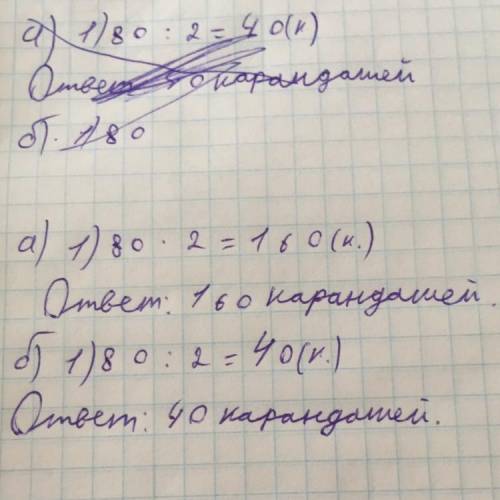 а) 1) 80 : 2 = 40(к)
Ответ 40 карандашей
б) 1) 80
а) 1) 80 · 2 = 160(к.)
Ответ: 160 карандашей.
б) 1) 80 : 2 = 40(к.)
Ответ: 40 карандашей.